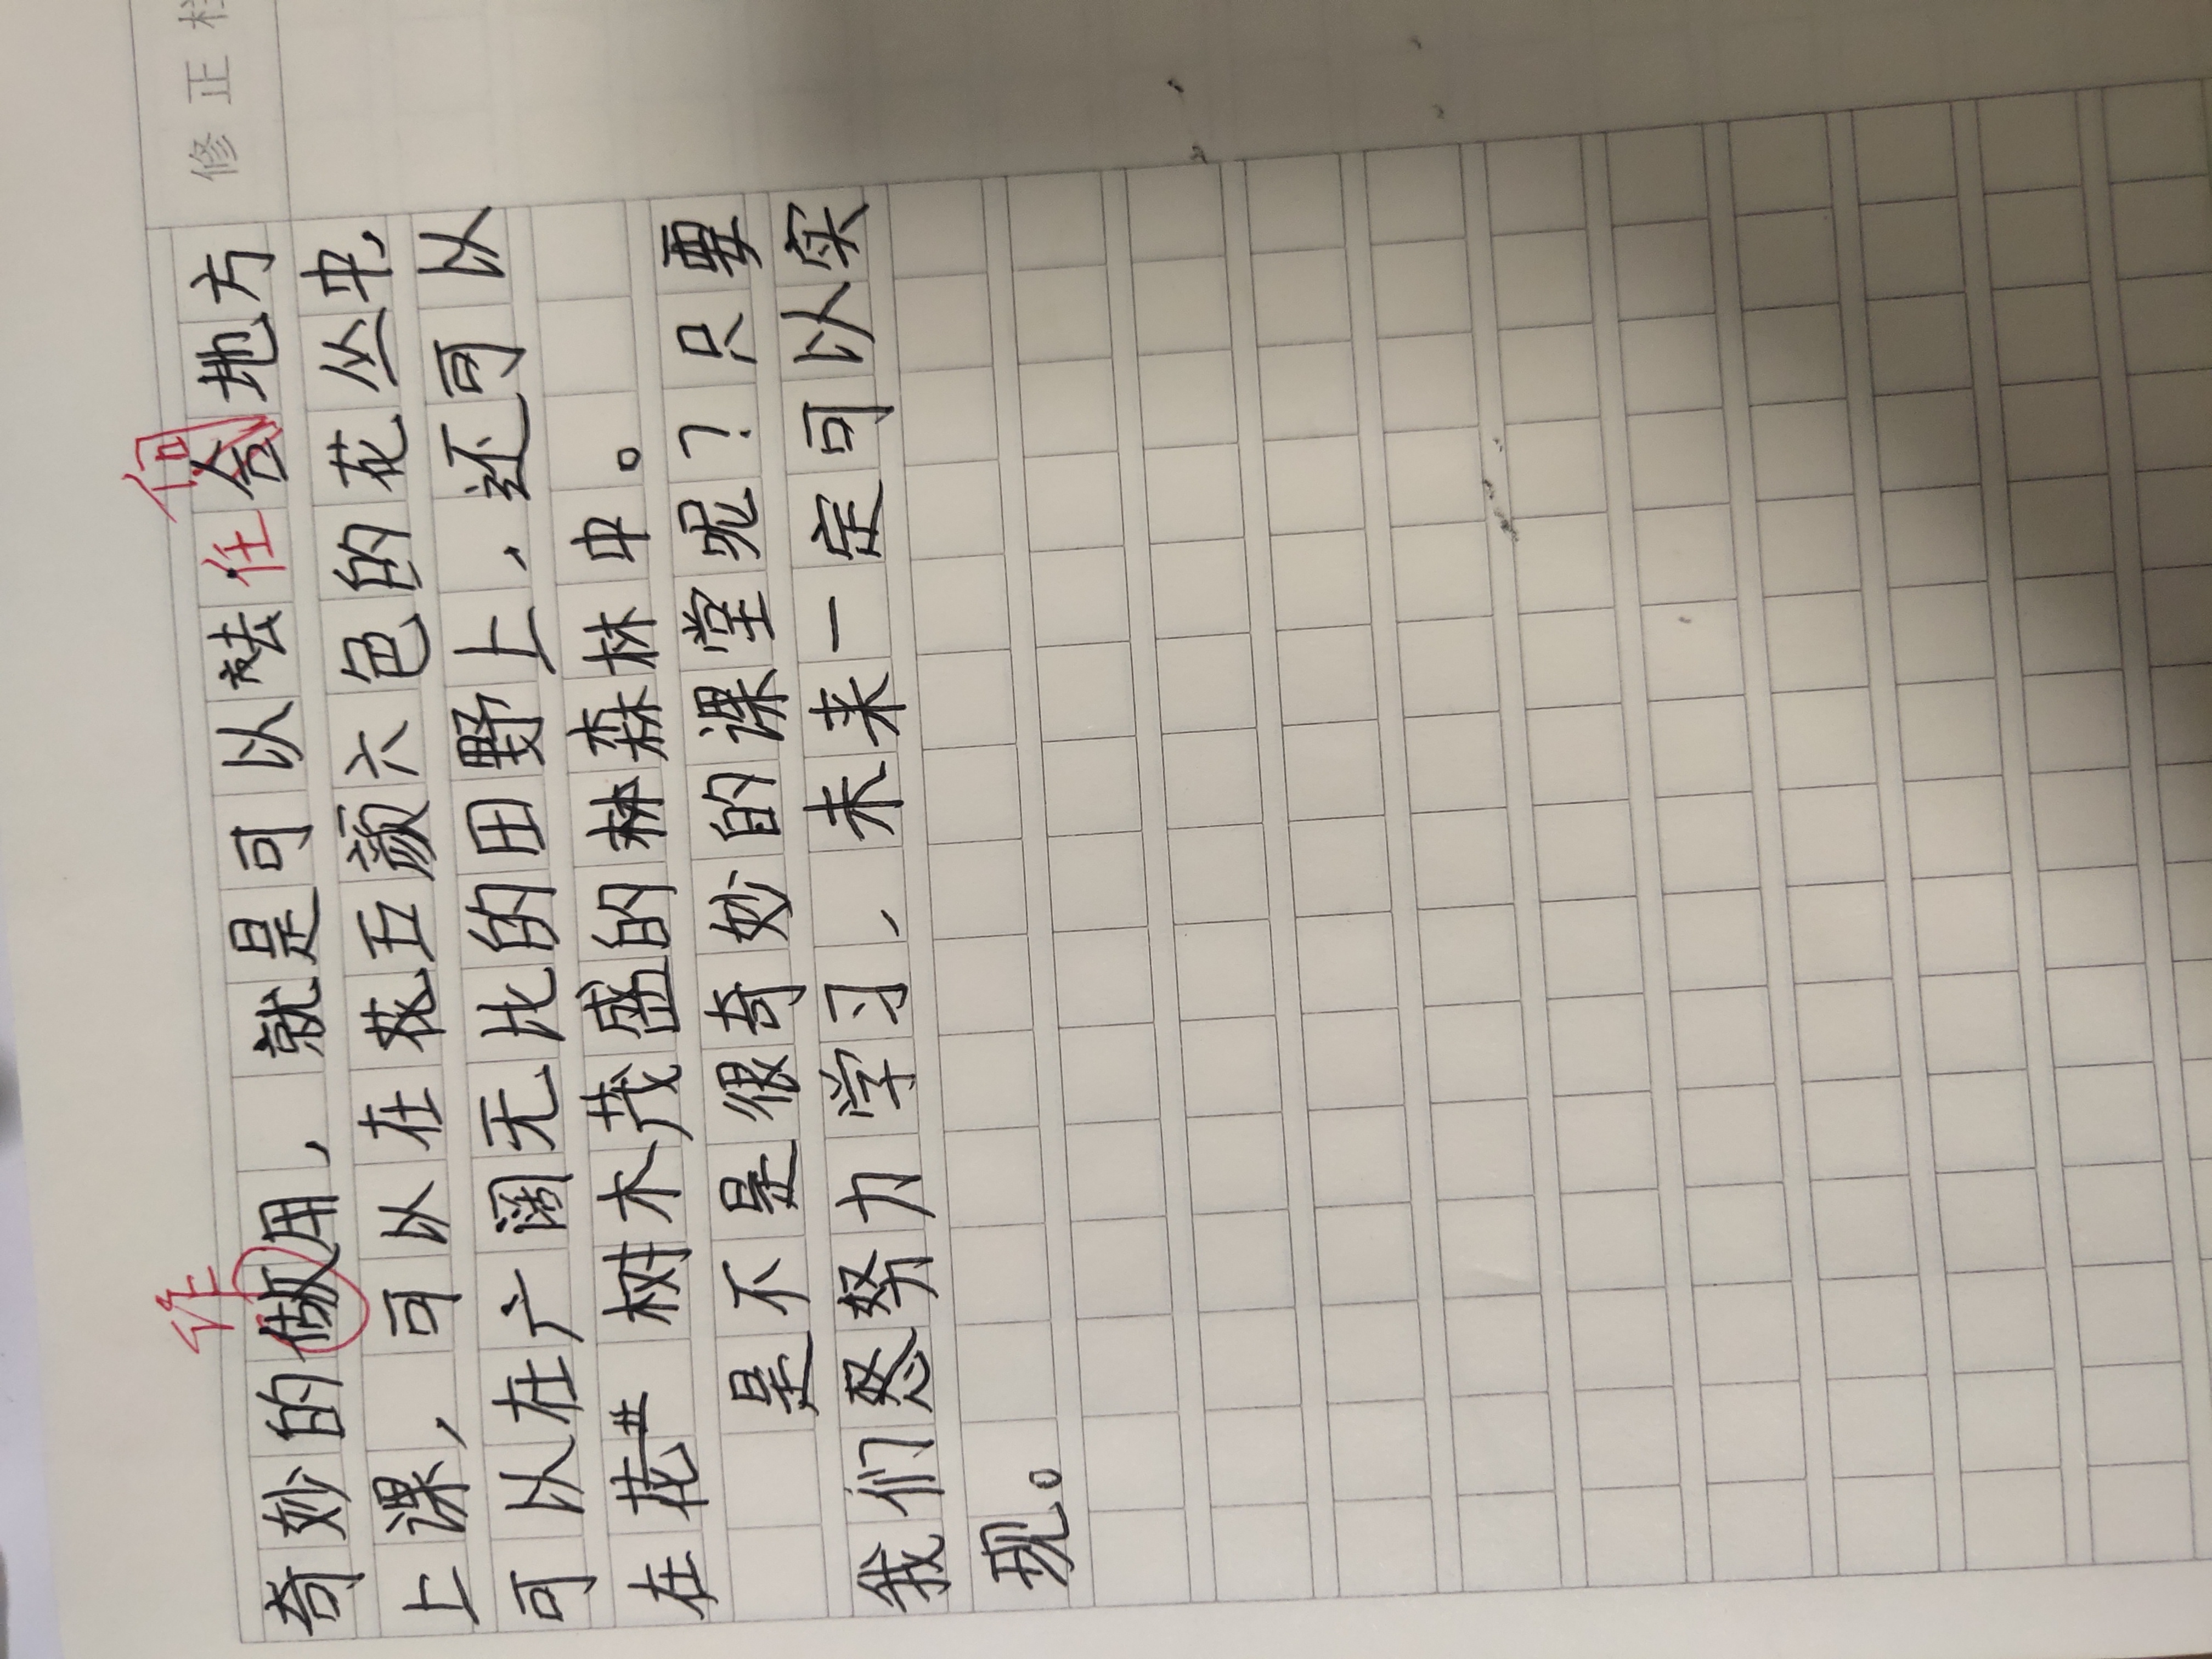 修正栏
作
何
奇妙的做用，就是可以去任合地方
上课，可以在花五颜六色的花丛中，
可以在广阔无比的田野上，还可以
在花 树木茂盛的林森林中。
是不是很奇妙的课堂呢？只要
我们怒努力学习，未来一定可以实
现。